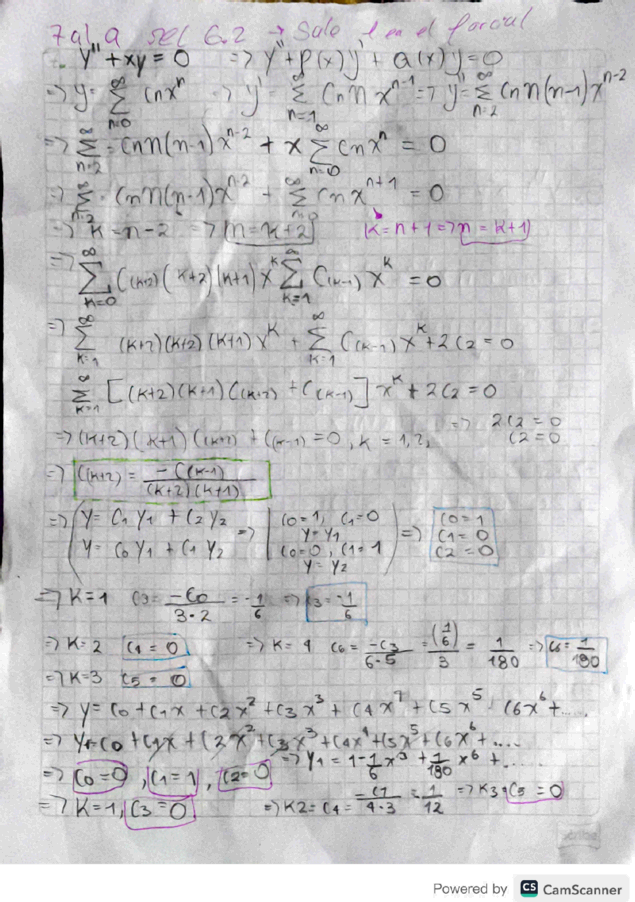 7 al. a sel 6.2 → Sale 1 en el parcial
y'' + xy = 0 => y'' + P(x)y' + Q(x)y = 0
=> y = ∞ Σ n=0 Cnx^n => y' = ∞ Σ n=1 Cn n x^(n-1) => y'' = ∞ Σ n=2 Cn n(n-1)x^(n-2)
=> ∞ Σ n=2 Cn n(n-1)x^(n-2) + x ∞ Σ n=0 Cnx^n = 0
=> Σ n=2 Cn n(n-1)x^(n-2) + ∞ Σ n=0 Cnx^(n+1) = 0
=> K = n-2 => n = K+2 K = n+1 => n = K+1
=> ∞ Σ K=0 C(K+2)(K+2)(K+1)x^K ∞ Σ K=1 C(K-1)x^K = 0
=> ∞ Σ K=1 (K+2)(K+2)(K+1)x^K + ∞ Σ K=1 C(K-1)x^K + 2C2 = 0
∞ Σ K=1 [(K+2)(K+1)C(K+2) + C(K-1)] x^K + 2C2 = 0
=> (K+2)(K+1)C(K+2) + C(K-1) = 0, K = 1,2, => 2C2 = 0
C2 = 0
=> C(K+2) = -C(K-1) / (K+2)(K+1)
=> (Y = C1Y1 + C2Y2 => C0=1, C1=0 => C0=1
Y = C0Y1 + C1Y2 Y=Y1 C1=0
C0=0, C1=1 C2=0
Y=Y2
=> K=1 C3 = -C0 / 3·2 = -1/6 => C3 = -1/6
=> K=2 C4 = 0 => K=4 C6 = -C3 / 6·5 = (1/6) / 3 = 1/180 => C6 = 1/180
=> K=3 C5 = 0
=> y = C0 + C1x + C2x^2 + C3x^3 + C4x^4 + C5x^5 C6x^6 + ....
=> Y1 = C0 + C1x + C2x^2 + C3x^3 + C4x^4 + C5x^5 + C6x^6 + ....
=> Y1 = 1 - 1/6 x^3 + 1/180 x^6 + ....
=> C0=0, C1=1, C2=0
=> K=1, C3=0 => K2 = C4 = -C1 / 4·3 = -1/12 => K3, C5 = 0
Powered by CS CamScanner